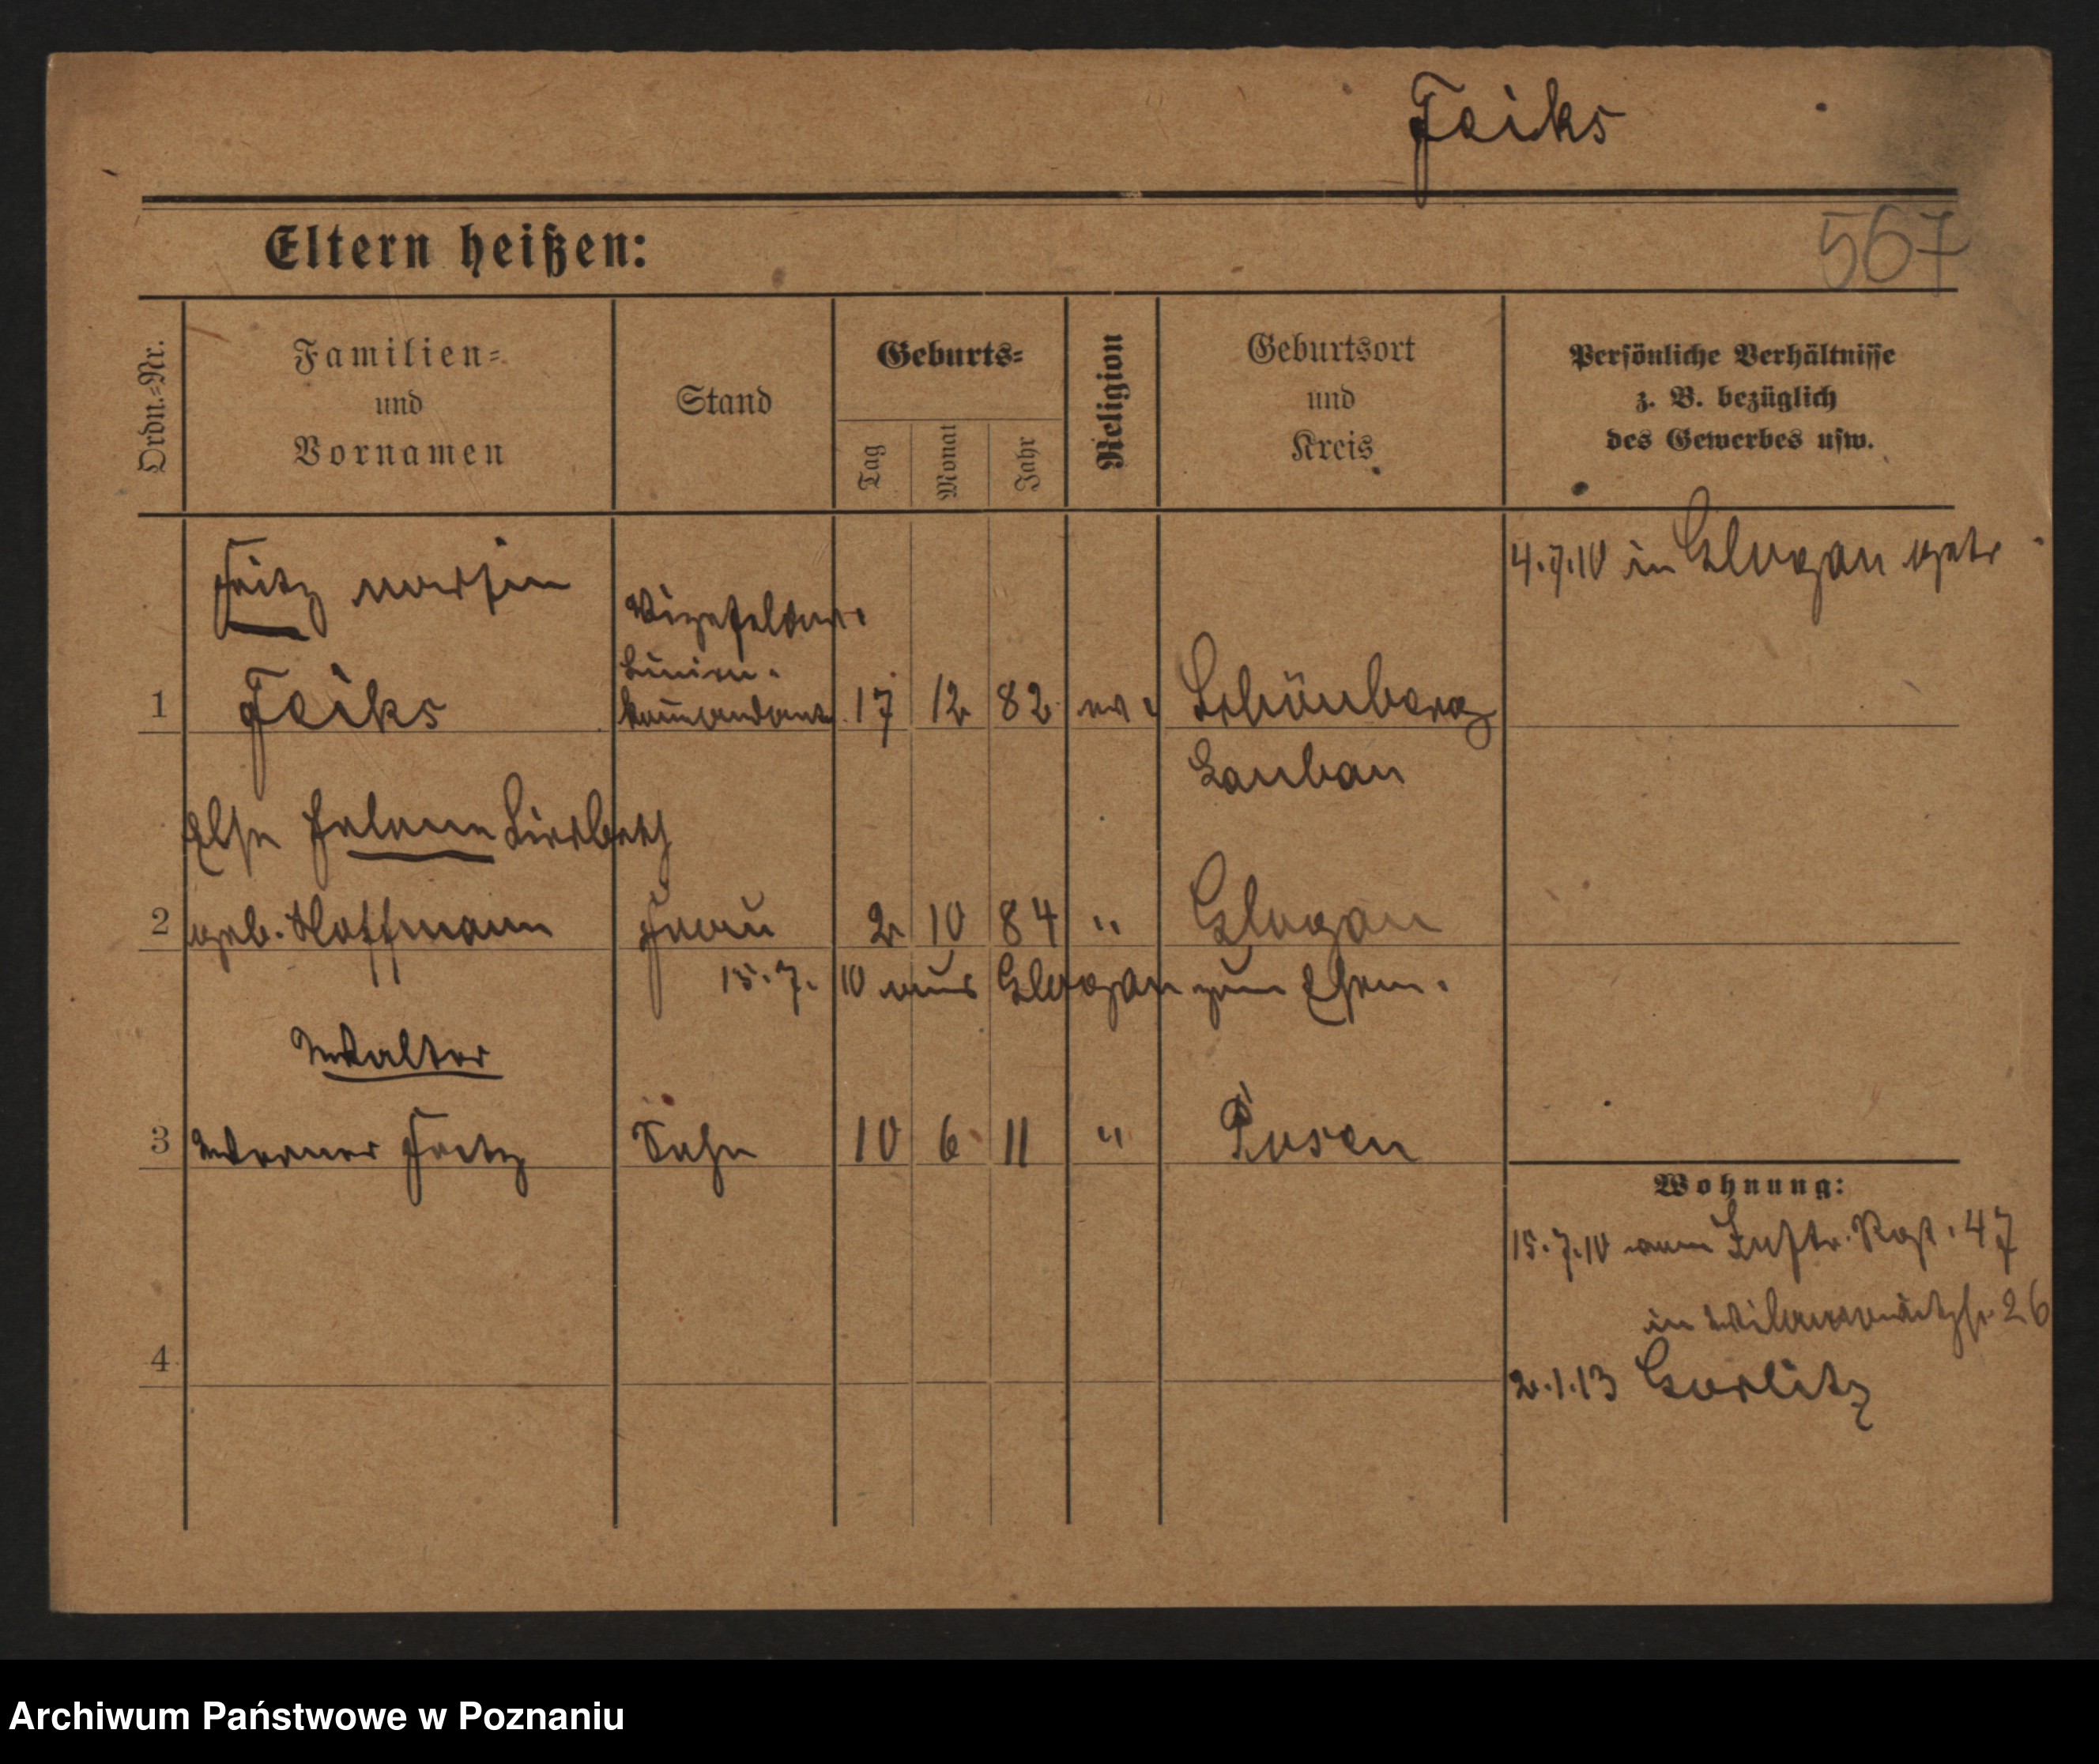 Feiks
Eltern heißen:
567
Ordn.=Nr.
Familien=
und
Vornamen
Stand
Geburts=
Tag
Monat
Jahr
Religion
Geburtsort
und
Kreis
Persönliche Verhältnisse
z. B. bezüglich
des Gewerbes usw.
4.7.10 in Glogau getr
Fritz
Vizefeldw.
1 Feiks 17 12 82 ev. Schönberg
Lauban
Else Helene
2 geb. Hoffmann Frau 2 10 84 " Glogau
15.7.10 aus Glogau zum Ehem.
Walter
3 Werner Fritz Sohn 10 6 11 " Posen
Wohnung:
15.7.10 vom Inftr. Rgt. 47
in 26
4
2.1.13 Görlitz
Archiwum Państwowe w Poznaniu